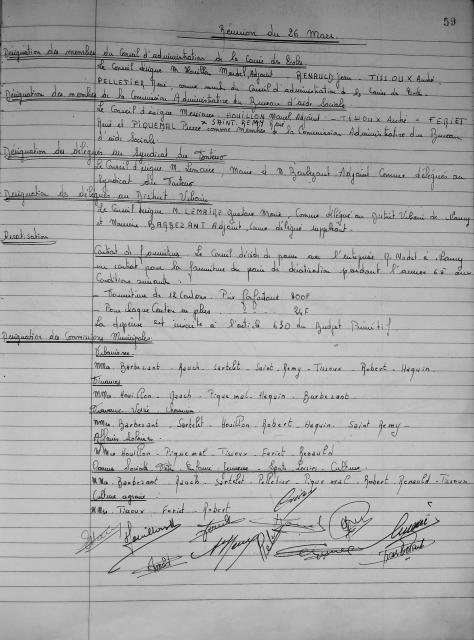 59
Réunion du 26 Mars.
Désignation des membres du Conseil d'administration de la Caisse des Ecoles
Le Conseil désigne M. Houillon Marcel, Adjoint RENAULD Jean - TISSOUX André
PELLETIER René, comme membres du Conseil d'administration de la Caisse des Ecoles.
Désignation des membres de la Commission Administrative du Bureau d'aide Sociale
Le Conseil désigne Messieurs HOUILLON Marcel Adjoint - TISSOUX André - FERIET
René et PIQUEMAL Pierre x SAINT-REMY comme membres à la Commission Administrative du Bureau
d'aide Sociale.
Désignation des délégués au Syndicat du
Le Conseil désigne M. Lemaire, Maire et M. Barbezant Adjoint comme délégués au
Syndicat du
Désignation des délégués au District Urbain
Le Conseil désigne M. LEMAIRE Gustave Maire, comme délégué au District Urbain de Nancy
et Monsieur BARBEZANT Adjoint, comme délégué suppléant.
Dératisation
Contrat de fourniture. Le Conseil décide de passer avec l'entreprise à Nancy
un contrat pour la fourniture du de dératisation pendant l'année 65 aux
Conditions suivantes :
- Fourniture de 12 Cartons. Prix forfaitaire 200F
- Pour chaque Carton en plus 24F
La dépense est inscrite à l'article 630 du Budget Primitif
Désignation des Commissions Municipales
Urbanisme.
MMrs. Barbezant - Rauch - Sartelet - Saint-Remy - Tissoux - Robert - Hequin.
Finances
MMrs. Houillon - Rauch - Piquemal - Hequin - Barbezant
Travaux Voirie Chemins
MMrs. Barbezant - Sartelet - Houillon - Robert - Hequin. Saint Remy -
Affaires Scolaires.
MMrs Houillon - Piquemal - Tissoux - Feriet - Renauld
Sociale Fêtes Enfance Jeunesse - Sports Loisirs - Culture
MMrs. Barbezant - Rauch - Sartelet - Pelletier - Piquemal - Robert - Renauld - Tissoux
Culture agraire.
MMrs. Tissoux - Feriet - Robert